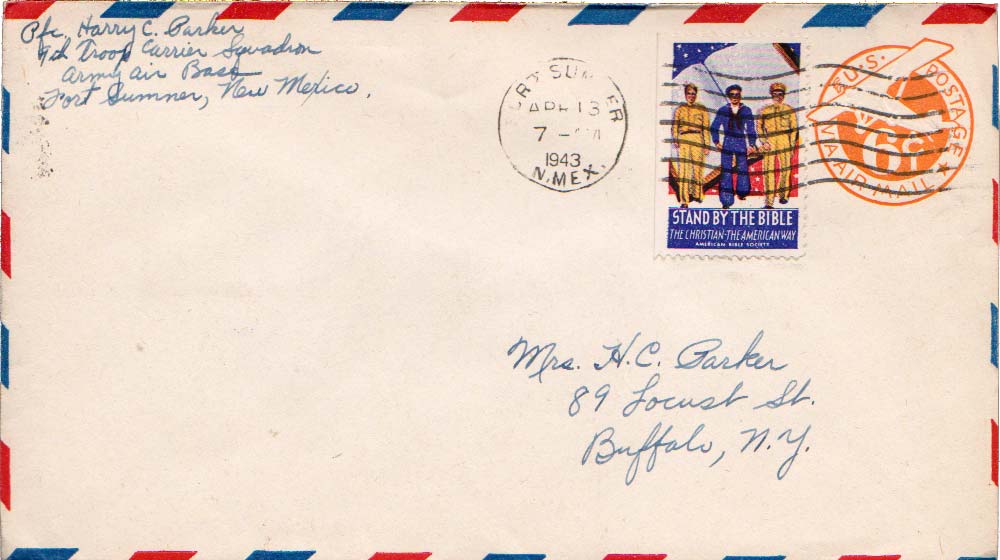 Pfc. Harry C. Parker
Troop Carrier Squadron
Army Air Base
Fort Sumner, New Mexico.
FORT SUMNER
APR 13
7
1943
N.MEX.
STAND BY THE BIBLE
THE CHRISTIAN-THE AMERICAN WAY
AMERICAN BIBLE SOCIETY
U.S. POSTAGE
6¢
VIA AIR MAIL
Mrs. H.C. Parker
89 Locust St.
Buffalo, N.Y.